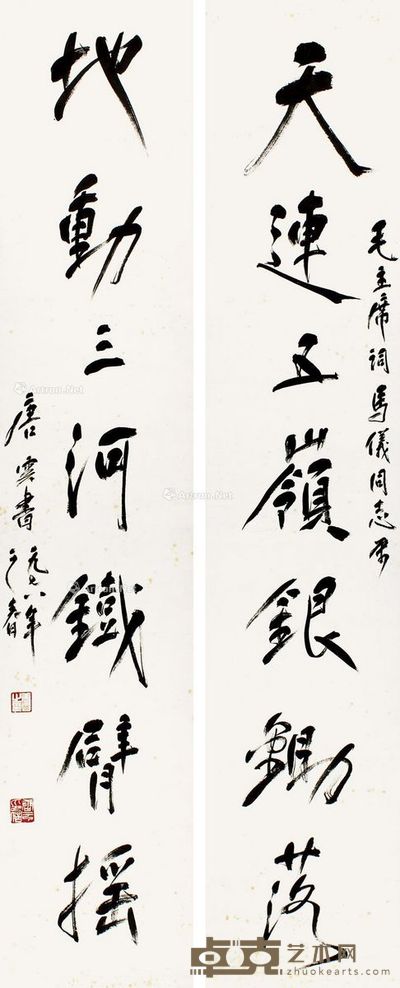 毛主席詞馬儀同志屬
天連五嶺銀鋤落
地動三河鐵臂搖
唐雲書
一九七八年
之春
Artron.Net
Artron.Net
Artron.Net
Artron.Net
卓克艺术网
zhuokearts.com